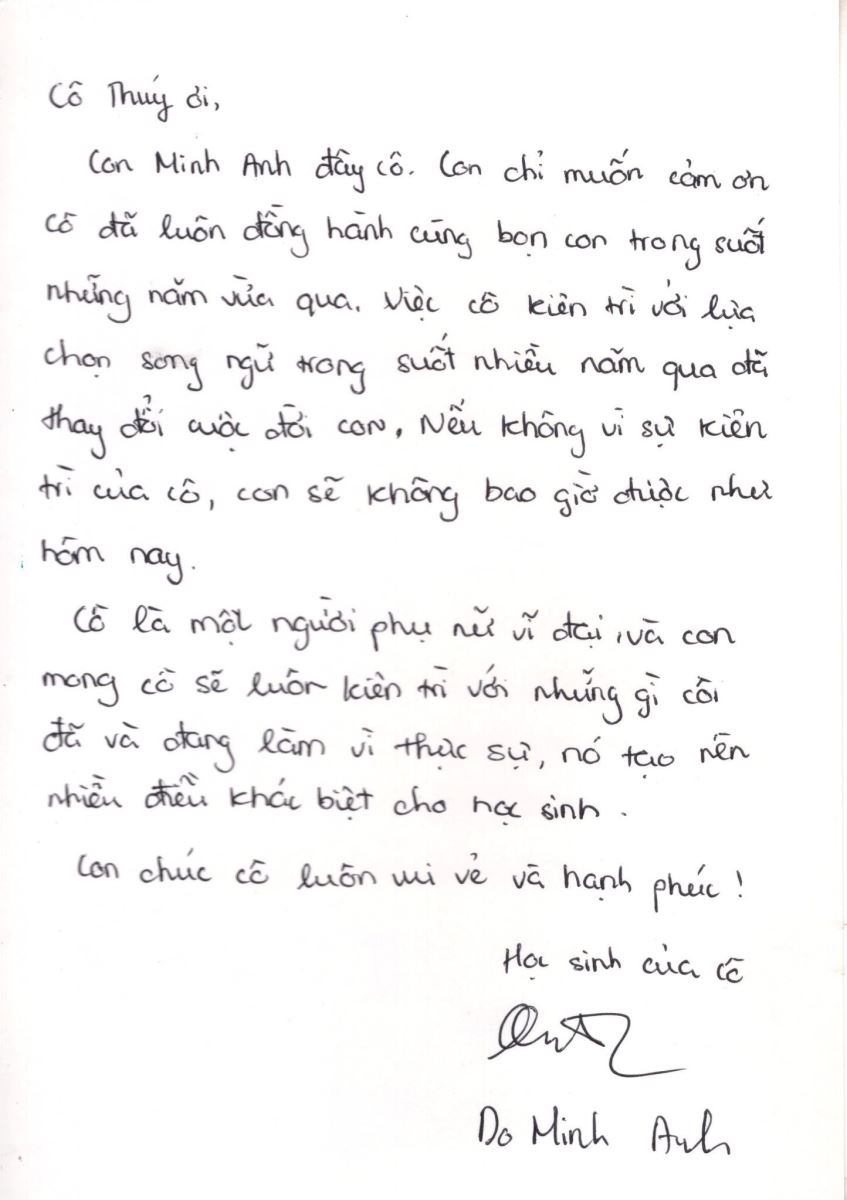 Cô Thúy ơi,
Con Minh Anh đây cô. Con chỉ muốn cảm ơn
cô đã luôn đồng hành cùng bọn con trong suốt
những năm vừa qua. Việc cô kiên trì với lựa
chọn song ngữ trong suốt nhiều năm qua đã
thay đổi cuộc đời con. Nếu không vì sự kiên
trì của cô, con sẽ không bao giờ được như
hôm nay.
Cô là một người phụ nữ vĩ đại, và con
mong cô sẽ luôn kiên trì với những gì côi
đã và đang làm vì thực sự, nó tạo nên
nhiều điều khác biệt cho học sinh.
Con chúc cô luôn vui vẻ và hạnh phúc!
Học sinh của cô
Do Minh Anh